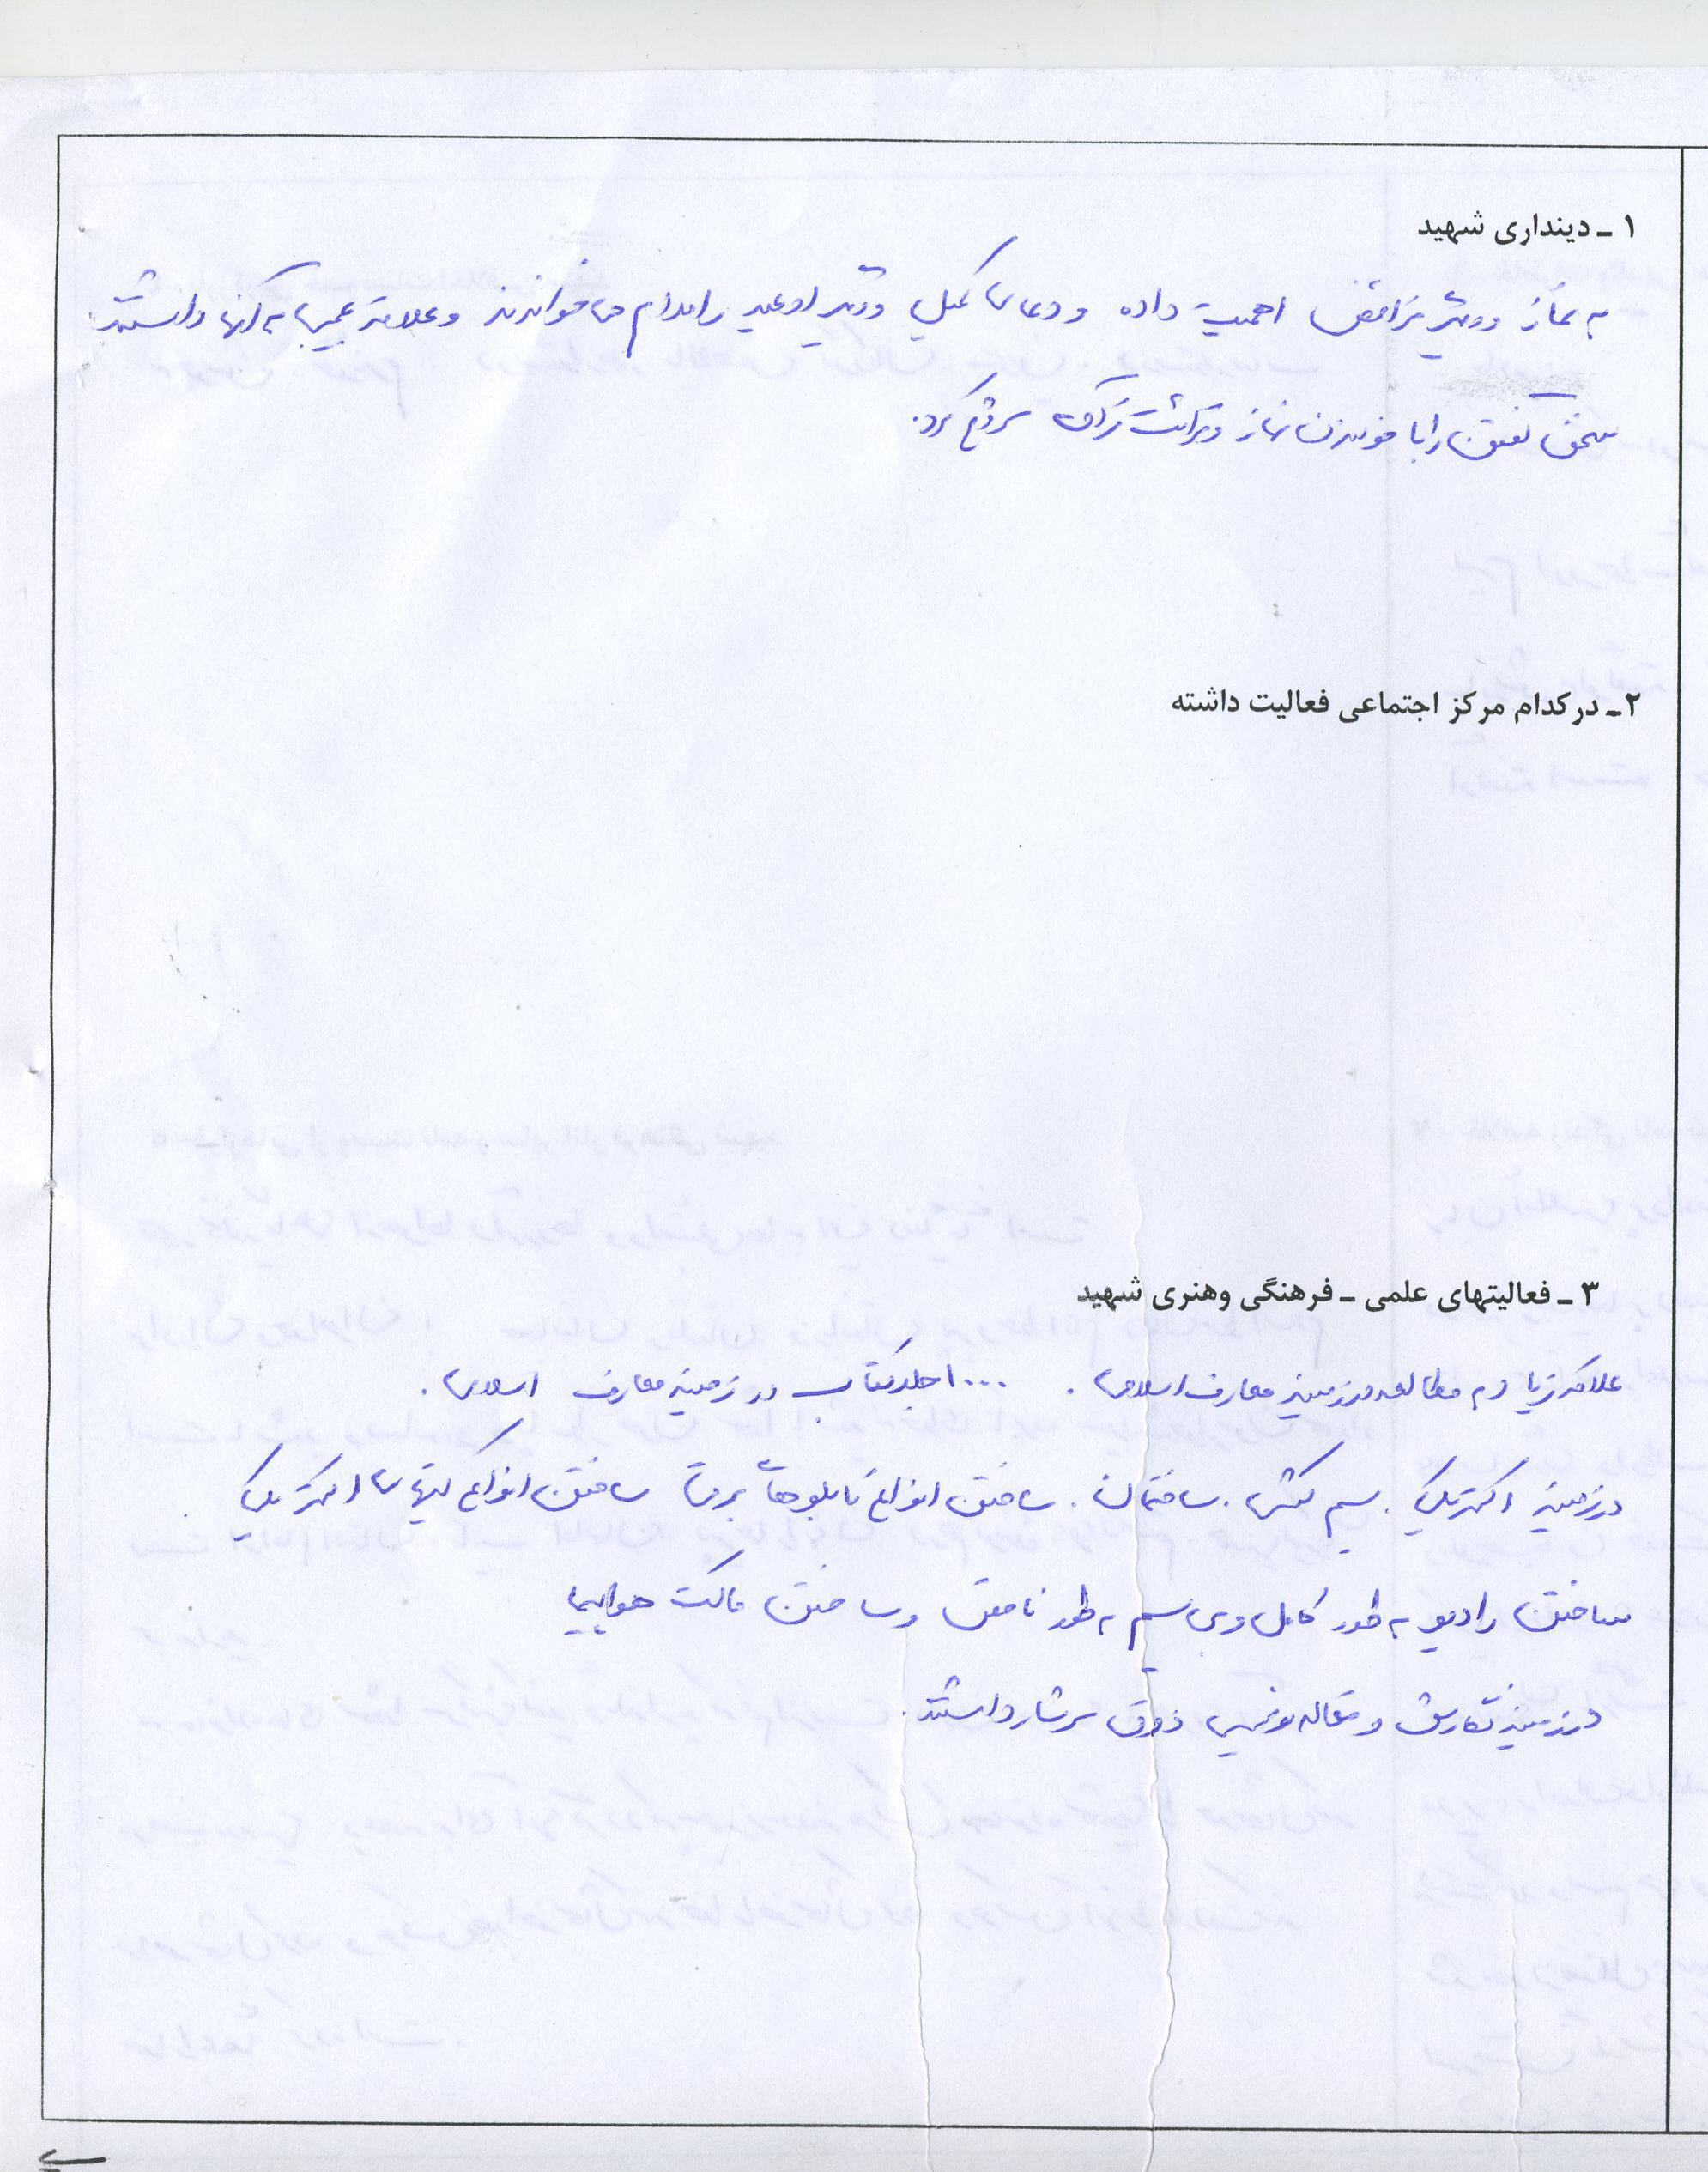 ۱ ـ دینداری شهید
به نماز ودیگر فرائض اهمیت داده و دعای کمیل ودیگر ادعیه رامدام می خواندند وعلاقه عجیبی به آنها داشتند.
سخن گفتن را با خواندن نماز وقرائت قرآن شروع کرد.
۲ ـ در کدام مرکز اجتماعی فعالیت داشته
۳ ـ فعالیتهای علمی ـ فرهنگی وهنری شهید
علاقه زیاد به مطالعه در زمینه معارف اسلامی . ۱۰۰۰ جلد کتاب در زمینه معارف اسلامی .
در زمینه الکتریکی . سیم کشی . ساختمان . ساختن انواع تابلوهای برق ساختن انواع کیتهای الکتریکی
ساختن رادیو به طور کامل وبی سیم به طور ناقص وساختن ماکت هواپیما
در زمینه نگارش و مقاله نویسی ذوق سرشار داشتند .